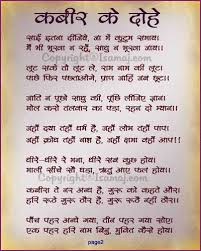 कबीर के दोहे
साईं इतना दीजिये, जा में कुटुम समाय।
मैं भी भूखा न रहूँ, साधु न भूखा जाय।।
लूट सके तो लूट ले, राम नाम की लूट।
पाछे फिर पछताओगे, प्राण जाहिं जब छूट।।
जाति न पूछो साधु की, पूछि लीजिए ज्ञान।
मोल करो तलवार का पड़ा, रहन दो म्यान।।
जहाँ दया तहाँ धर्म है, जहाँ लोभ तहाँ पाप।
जहाँ क्रोध तहाँ नाश है, जहाँ क्षमा तहाँ आप।।
धीरे-धीरे रे मना, धीरे सब कुछ होय।
माली सींचे सौ घड़ा, ऋतु आए फल होय।।
कबीरा ते नर अन्ध है, गुरु को कहते और।
हरि रूठे गुरु ठौर है, गुरु रूठे नहीं ठौर।।
पाँच पहर धन्धे गया, तीन पहर गया सोय।
एक पहर हरि नाम बिनु, मुक्ति कैसे होय।।
page2
Copyright©Isamaj.com
Copyright©Isamaj.com